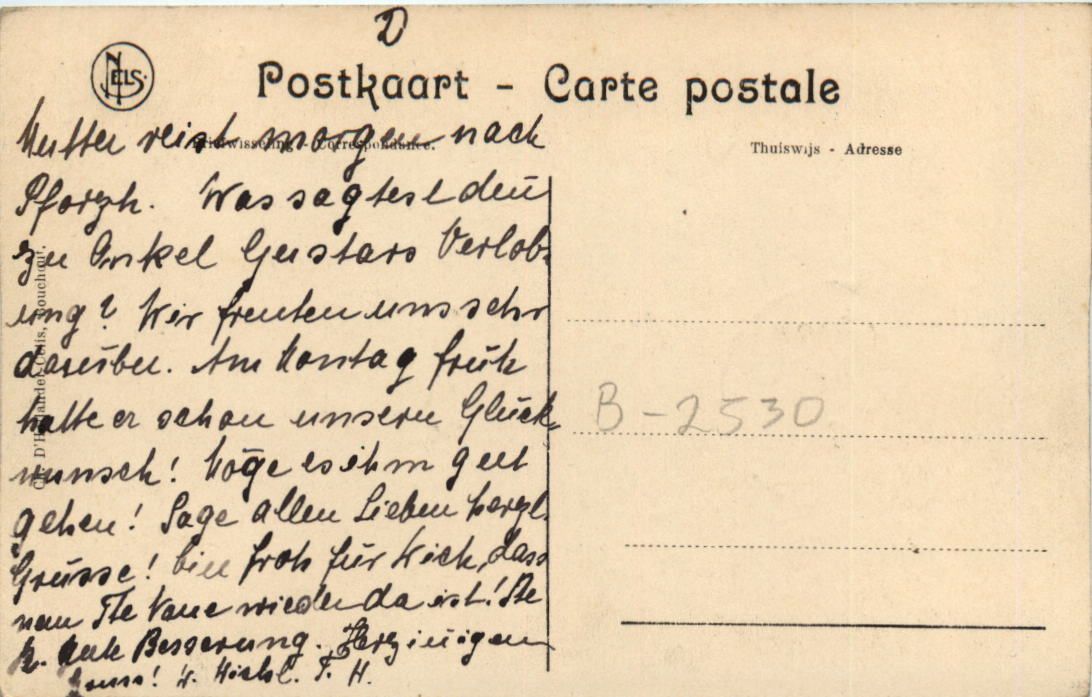 D
NELS
Postkaart - Carte postale
Briefwisseling - Correspondance.
Thuiswijs - Adresse
Mutter reist morgen nach
Pforzh. Was sagtest denn
zu Onkel Gustavs Verlob-
ung? Wir freuten uns sehr
darüber. Am Montag früh
hatte er schon unsern Glück-
wunsch! Möge es ihm gut
gehen! Sage allen Lieben herzl.
Grüsse! bin froh für Dich, dass
nun Tte wieder da ist!
Gute Besserung. Herzinnigen
T. H.
D'H
B-2530